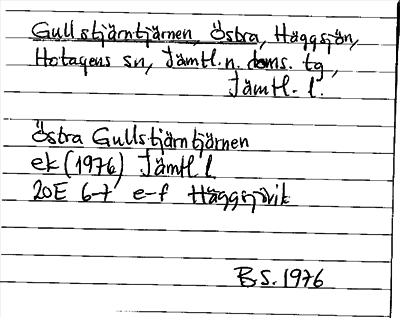 Gullstjärntjärnen, Östra, Häggsjön,
Hotagens sn, Jämtl. n. doms. tg,
Jämtl. l.
Östra Gullstjärntjärnen
ek (1976) Jämtl l
20E 6-7 e-f Häggsjövik
B.S. 1976